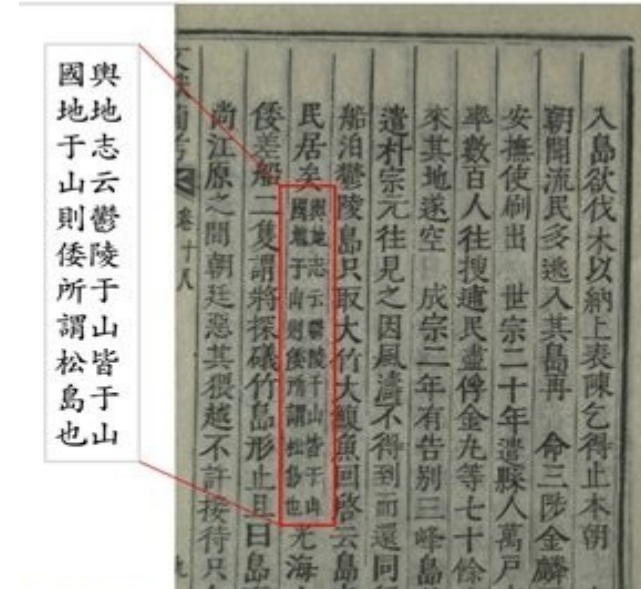 輿地志云鬱陵于山皆于山
國地于山則倭所謂松島也
入島欲伐木以納上表陳乞得止本朝
朝聞流民多逃入其島再 命三陟金麟
安撫使刷出 世宗二十年遣縣人萬戶
率數百人往搜逋民盡俘金丸等七十餘
來其地遂空 成宗二年有告別三峰島
遣朴宗元往見之因風濤不得到而還同
船泊鬱陵島只取大竹大鰒魚回啓云島
民居矣
輿地志云鬱陵于山皆于山
國地于山則倭所謂松島也
光海
倭差船二隻謂將探礒竹島形止且曰島
尚江原之間朝廷惡其猥越不許接待只
文獻備考 卷十八 九